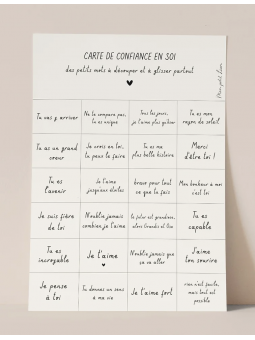 CARTE DE CONFIANCE EN SOI
des petits mots à découper et à glisser partout
Tu vas y arriver
Ne te compare pas,
tu es unique
Tous les jours,
je t'aime plus qu'hier
Tu es mon
rayon de soleil
Tu as un grand
cœur
Je crois en toi,
tu peux le faire
Tu es ma
plus belle histoire
Merci
d'être toi !
Tu es
l'avenir
Je t'aime
jusqu'aux étoiles
bravo pour tout
ce que tu fais
Mon bonheur à moi
c'est toi
Je suis fière
de toi
N'oublie jamais
combien je t'aime
le futur est grandiose,
alors
et
Tu es
capable
Tu es
incroyable
Je t'aime
N'oublie jamais que
ça va aller
J'aime
ton sourire
Je pense
à toi
Tu donnes un sens
à ma vie
Je t'aime fort
rien n'est facile,
mais tout est
possible